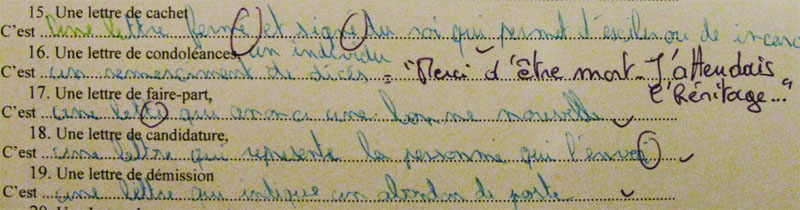 15. Une lettre de cachet
C'est une lettre fermé et signé du roi qui permet d'exiler ou de incarc
un individu
16. Une lettre de condoléances,
C'est un remerciment de décès. = "Merci d'être mort. J'attendais
l'héritage..."
17. Une lettre de faire-part,
C'est une lettre qui annonce une bonne nouvelle
18. Une lettre de candidature,
C'est une lettre qui représente la personne qui l'envoi
19. Une lettre de démission
C'est une lettre qui indique un abandon de poste